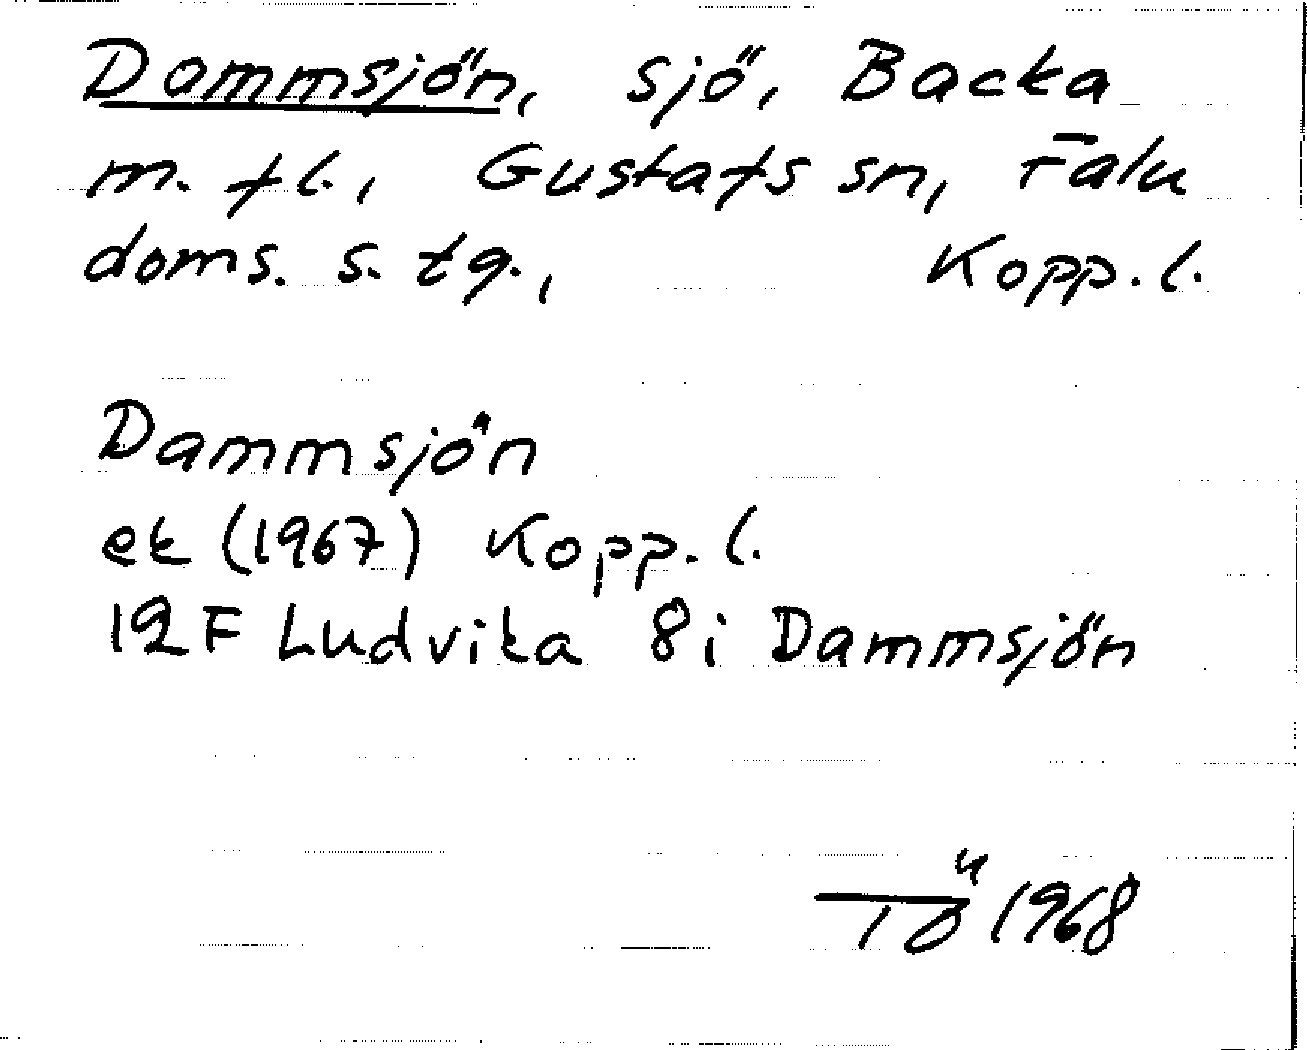 Dammsjön, sjö, Backa
m. fl., Gustafs sn, Falu
doms. s. tg., Kopp. l.
Dammsjön
ek (1967) Kopp. l.
12F Ludvika 8i Dammsjön
TÖ 1968